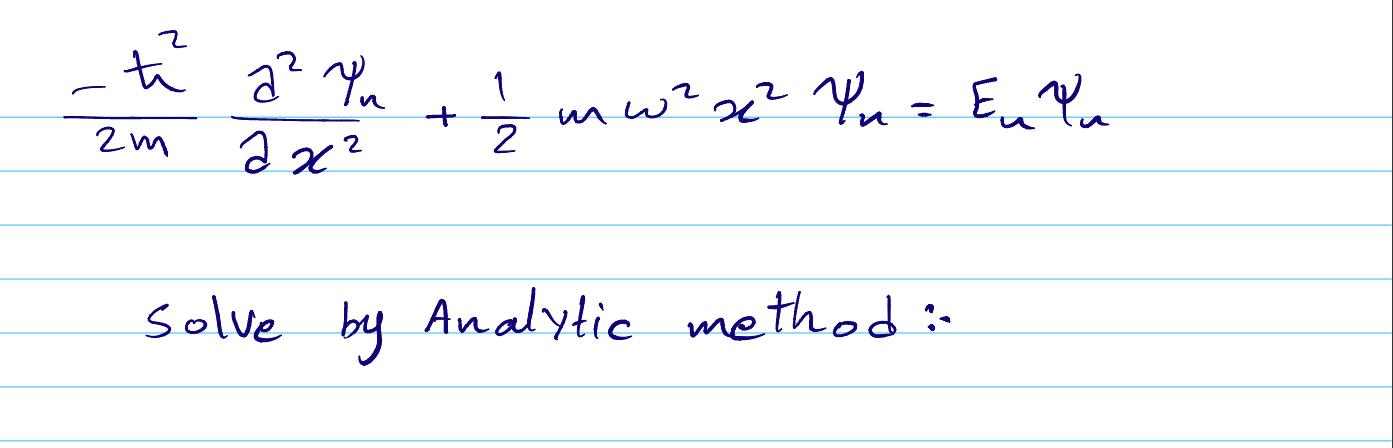 -ħ²/2m ∂²Ψₙ/∂x² + 1/2 mω²x² Ψₙ = Eₙ Ψₙ
Solve by Analytic method :-